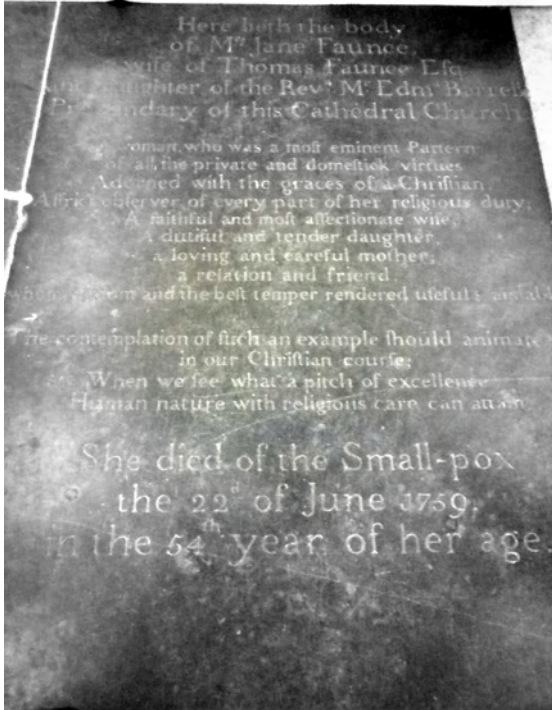 Here lieth the body
of Mrs Jane Faunce,
wife of Thomas Faunce Esq
and daughter of the Revd Mr Edmd Barrell
Prebendary of this Cathedral Church
woman, who was a moſt eminent Pattern
of all the private and domeſtick virtues
Adorned with the graces of a Chriſtian,
A ſtrict obſerver of every part of her religious duty,
A faithful and moſt affectionate wife,
A dutiful and tender daughter,
a loving and careful mother,
a relation and friend
and the beſt temper rendered uſeful &
The contemplation of ſuch an example ſhould animate
in our Chriſtian courſe;
When we ſee what a pitch of excellence
Human nature with religious care can attain
She died of the Small-pox
the 22d of June 1759,
in the 54th year of her age.